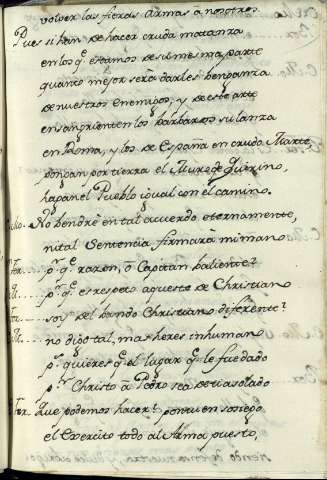 volver las fieras Armas a nosotros
Pues si han de hacer cruda matanza
en los q.e estamos de su mesma parte
quanto mejor sera darles benganza
de nuestros Enemigos, y de este arte
ensangrienten los barbaros su lanza
en Roma, y los de España en crudo Marte,
pongan por tierra el Muro de Quirino,
hagan el Pueblo igual con el camino.
No tendre en tal acuerdo eternamente,
ni tal Sentencia firmará mi mano
For. p.r q.e razon, ò Capitan baliente?
p.r q.e es respeto aqueste de Christiano
For. sois del bando Christiano diferente?
no digo tal, mas heres inhumano
p.r quieres q.e el lugar q.e le fue dado
p.r Christo à Pedro sea de ti asolado
For. que podemos hacer? pon tu en sosiego
el Exercito todo al Arma puesto,